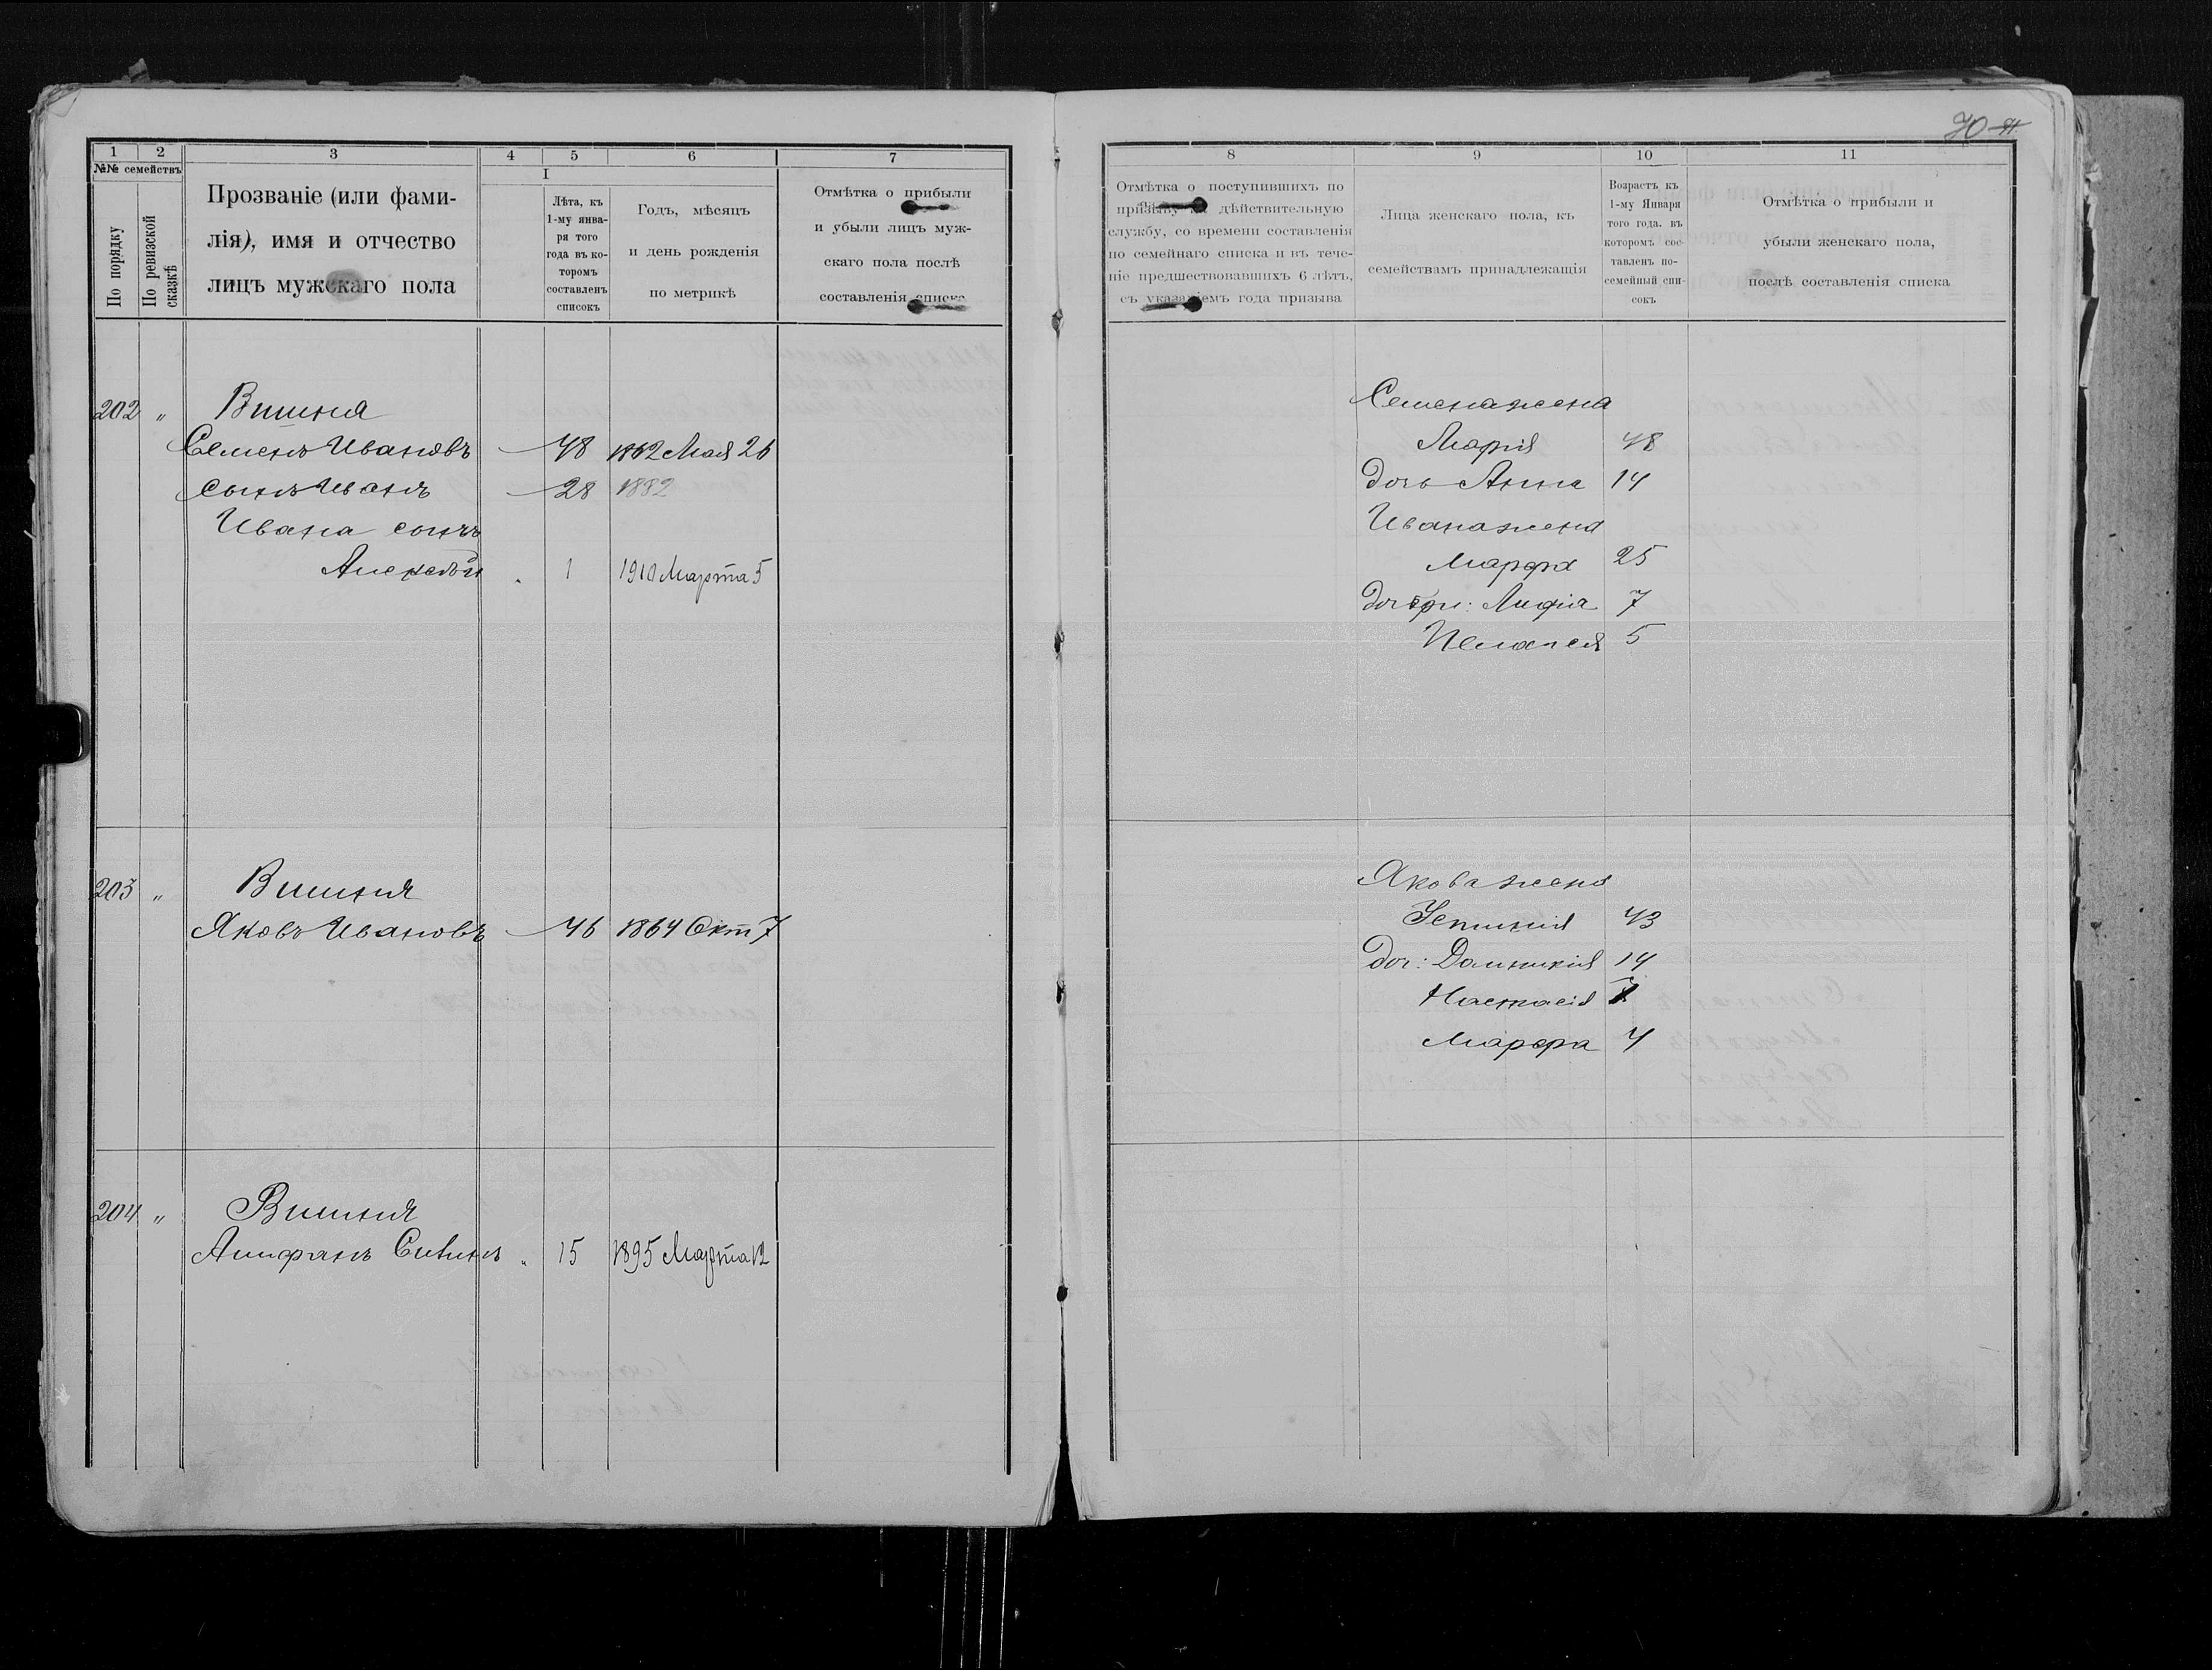 70 71
1 2 3 4 5 6 7
№№ семействъ
По порядку
По ревизской сказкѣ
Прозваніе (или фами-
лія), имя и отчество
лицъ мужскаго пола
I
Лѣта, къ
1-му янва-
ря того
года въ ко-
торомъ
составленъ
списокъ
Годъ, мѣсяцъ
и день рожденія
по метрикѣ
Отмѣтка о прибыли
и убыли лицъ муж-
скаго пола послѣ
составленія списка
202 „ Вишня
Семенъ Ивановъ — 48 1862 Мая 26
сынъ Иванъ — 28 1882
Ивана сынъ
Алексѣй „ 1 1910 Марта 5
203 „ Вишня
Яковъ Ивановъ — 46 1864 Окт 7
204 „ Вишня
15 1895 Марта 12
8 9 10 11
Отмѣтка о поступившихъ по
призыву на дѣйствительную
службу, со времени составленія
по семейнаго списка и въ тече-
ніе предшествовавшихъ 6 лѣтъ,
съ указаніемъ года призыва
Лица женскаго пола, къ
семействамъ принадлежащія
Возрастъ къ
1-му Января
того года, въ
которомъ сос-
тавленъ по-
семейный спи-
сокъ
Отмѣтка о прибыли и
убыли женскаго пола,
послѣ составленія списка
Семена жена
Марія 48
дочь Анна 14
Ивана жена
Марфа 25
7
Пелагея 5
Якова жена
43
доч: Домникія 14
Настасія 7
Марфа 4